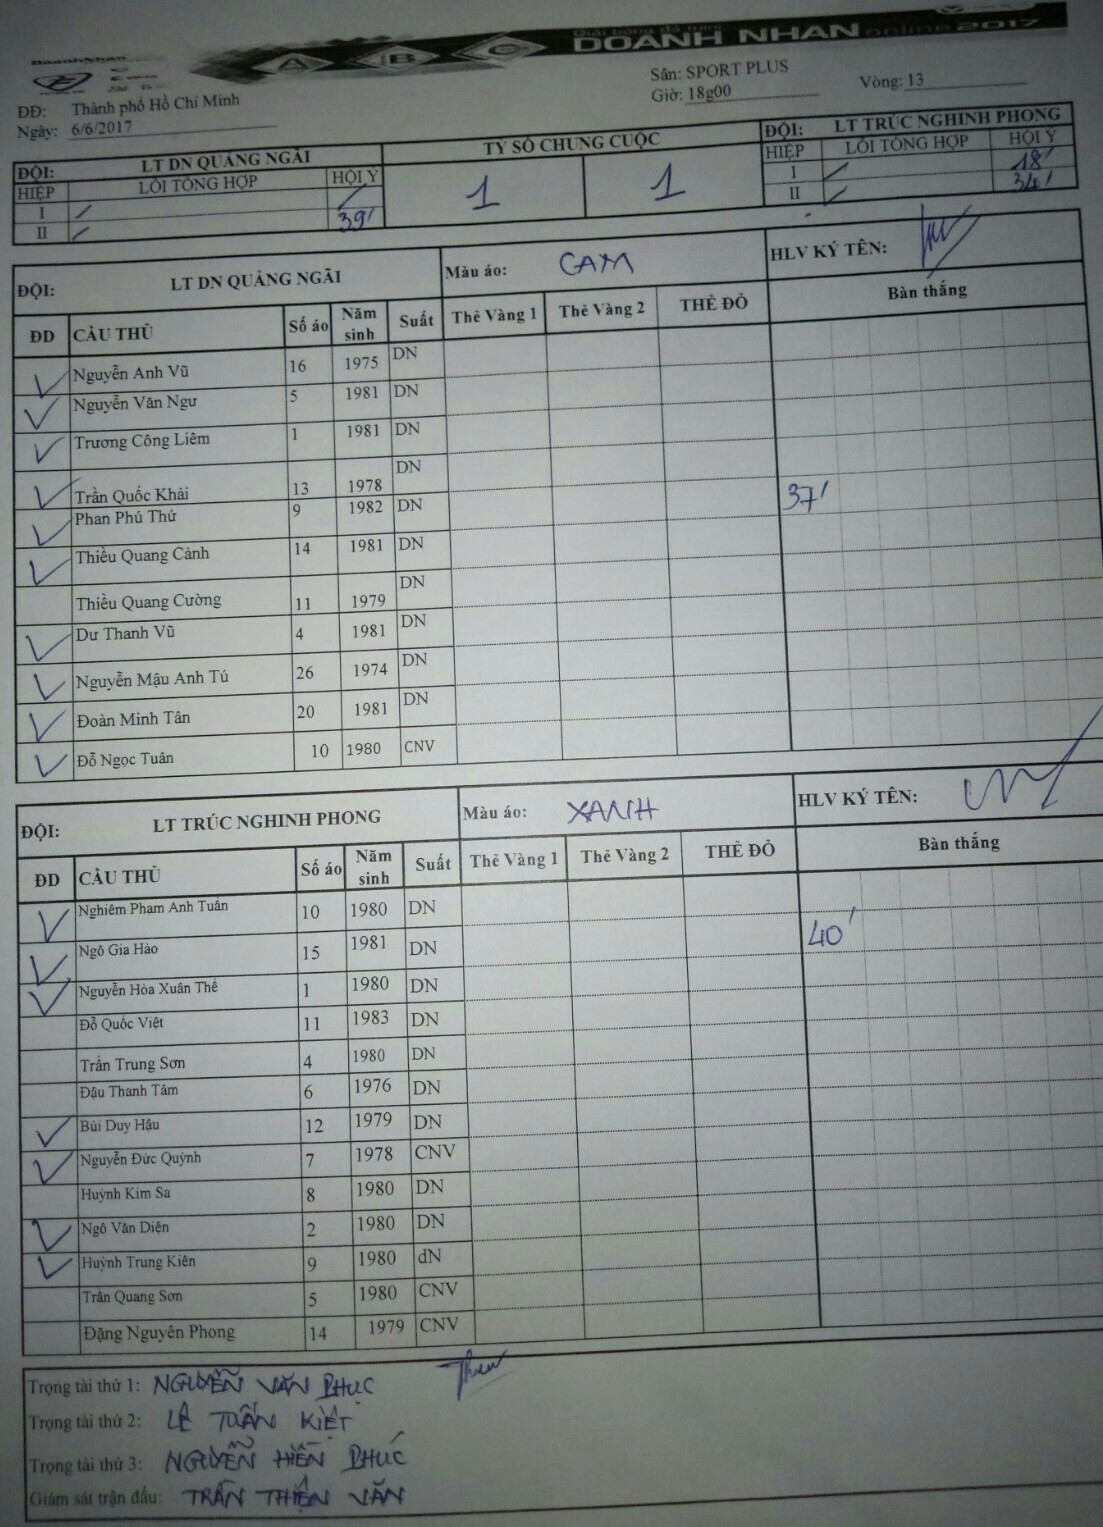 DoanhNhan
A B C
Giải bóng đá mini
DOANH NHAN online 2017
ĐĐ: Thành phố Hồ Chí Minh
Sân: SPORT PLUS
Ngày: 6/6/2017
Giờ: 18g00
Vòng: 13
ĐỘI: LT DN QUẢNG NGÃI TỶ SỐ CHUNG CUỘC ĐỘI: LT TRÚC NGHINH PHONG
HIỆP LỖI TỔNG HỢP HỘI Ý 1 1 HIỆP LỖI TỔNG HỢP HỘI Ý
I / / I / 18'
II / 39' II / 34'
ĐỘI: LT DN QUẢNG NGÃI Màu áo: CAM HLV KÝ TÊN:
ĐD CẦU THỦ Số áo Năm sinh Suất Thẻ Vàng 1 Thẻ Vàng 2 THẺ ĐỎ Bàn thắng
Nguyễn Anh Vũ 16 1975 DN
Nguyễn Văn Ngư 5 1981 DN
Trương Công Liêm 1 1981 DN
Trần Quốc Khải 13 1978 DN
Phan Phú Thứ 9 1982 DN 37'
Thiều Quang Cảnh 14 1981 DN
Thiều Quang Cường 11 1979 DN
Dư Thanh Vũ 4 1981 DN
Nguyễn Mậu Anh Tú 26 1974 DN
Đoàn Minh Tân 20 1981 DN
Đỗ Ngọc Tuân 10 1980 CNV
ĐỘI: LT TRÚC NGHINH PHONG Màu áo: XANH HLV KÝ TÊN:
ĐD CẦU THỦ Số áo Năm sinh Suất Thẻ Vàng 1 Thẻ Vàng 2 THẺ ĐỎ Bàn thắng
Nghiêm Phạm Anh Tuấn 10 1980 DN
Ngô Gia Hào 15 1981 DN 40'
Nguyễn Hòa Xuân Thế 1 1980 DN
Đỗ Quốc Việt 11 1983 DN
Trần Trung Sơn 4 1980 DN
Đậu Thanh Tâm 6 1976 DN
Bùi Duy Hậu 12 1979 DN
Nguyễn Đức Quỳnh 7 1978 CNV
Huỳnh Kim Sa 8 1980 DN
Ngô Văn Diện 2 1980 DN
Huỳnh Trung Kiên 9 1980 dN
Trần Quang Sơn 5 1980 CNV
Đặng Nguyên Phong 14 1979 CNV
Trọng tài thứ 1: NGUYỄN VĂN PHỤC
Trọng tài thứ 2: LÊ TUẤN KIỆT
Trọng tài thứ 3: NGUYỄN HIỀN PHÚC
Giám sát trận đấu: TRẦN THIỆN VĂN